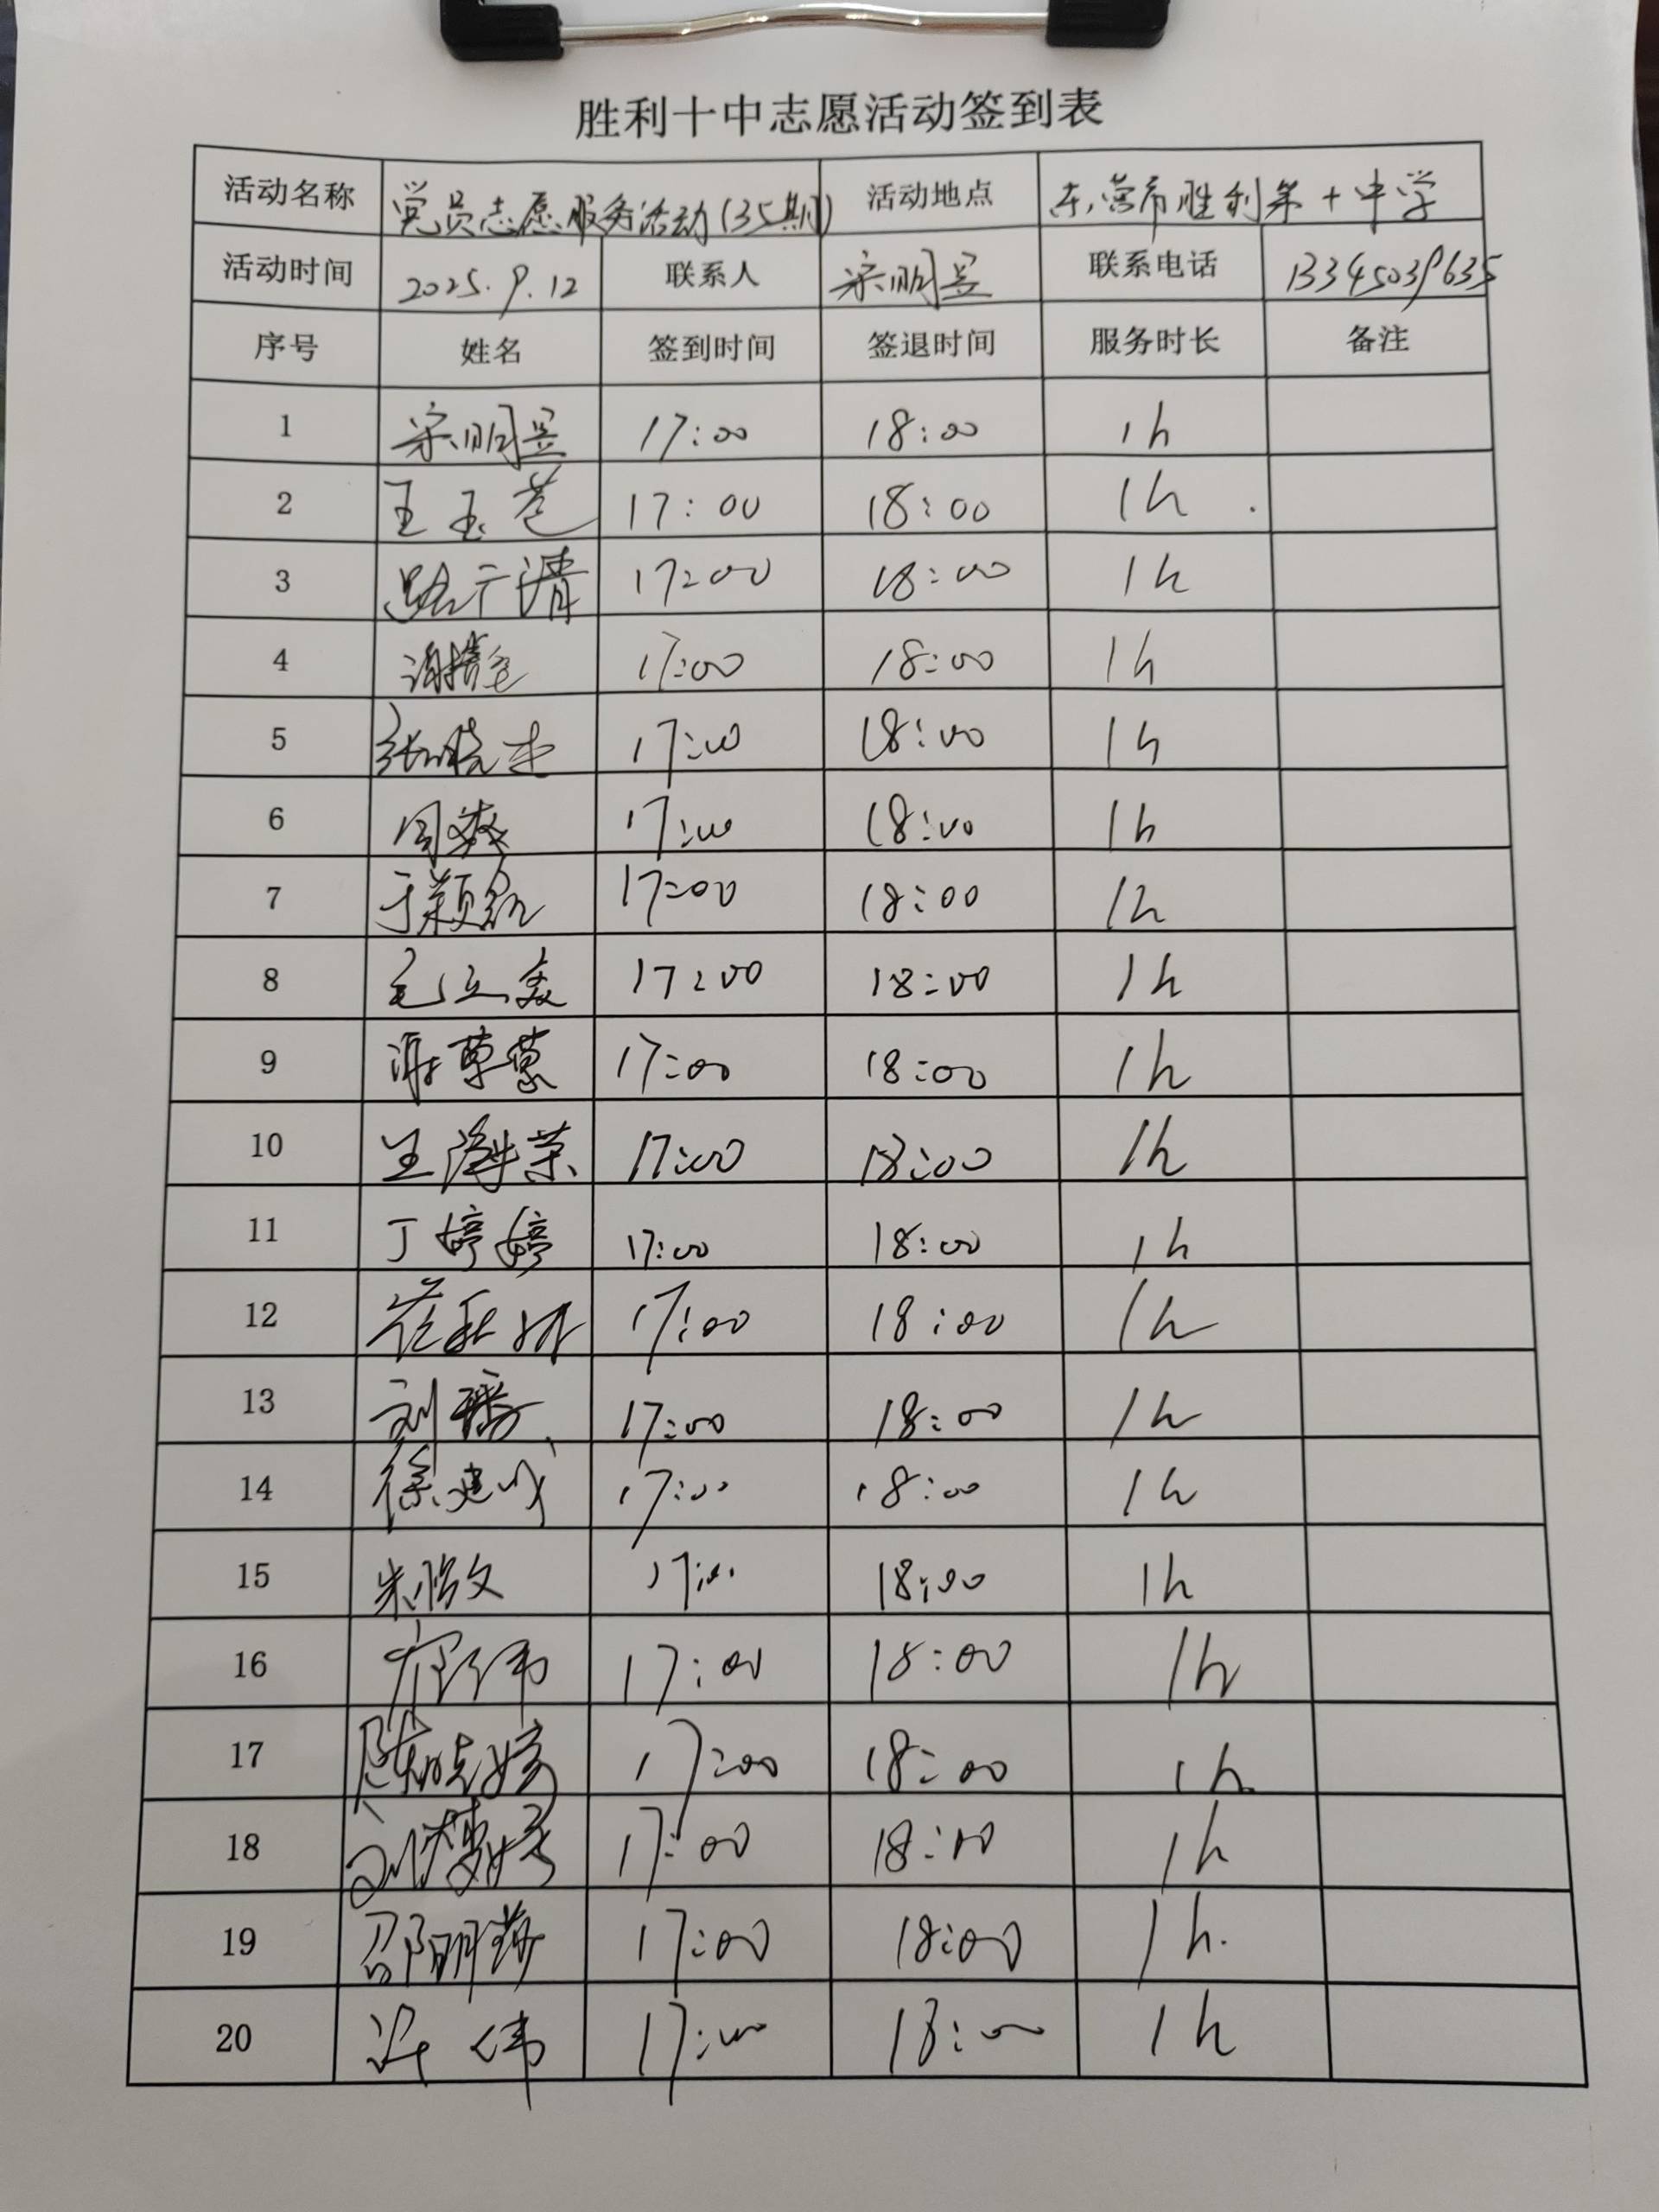 胜利十中志愿活动签到表
活动名称 党员志愿服务活动(35期) 活动地点 东营市胜利第十中学
活动时间 2025.9.12 联系人 宋明昱 联系电话 13345039635
序号 姓名 签到时间 签退时间 服务时长 备注
1 宋明昱 17:00 18:00 1h
2 王玉苍 17:00 18:00 1h
3 路广清 17:00 18:00 1h
4 17:00 18:00 1h
5 张晓忠 17:00 18:00 1h
6 周爽 17:00 18:00 1h
7 于颖 17:00 18:00 1h
8 毛立美 17:00 18:00 1h
9 17:00 18:00 1h
10 王泽荣 17:00 18:00 1h
11 丁婷婷 17:00 18:00 1h
12 17:00 18:00 1h
13 刘璐 17:00 18:00 1h
14 徐建 17:00 18:00 1h
15 朱 文 17:00 18:00 1h
16 17:00 18:00 1h
17 陈晓婷 17:00 18:00 1h
18 刘 17:00 18:00 1h
19 邵明 17:00 18:00 1h.
20 许伟 17:00 18:00 1h